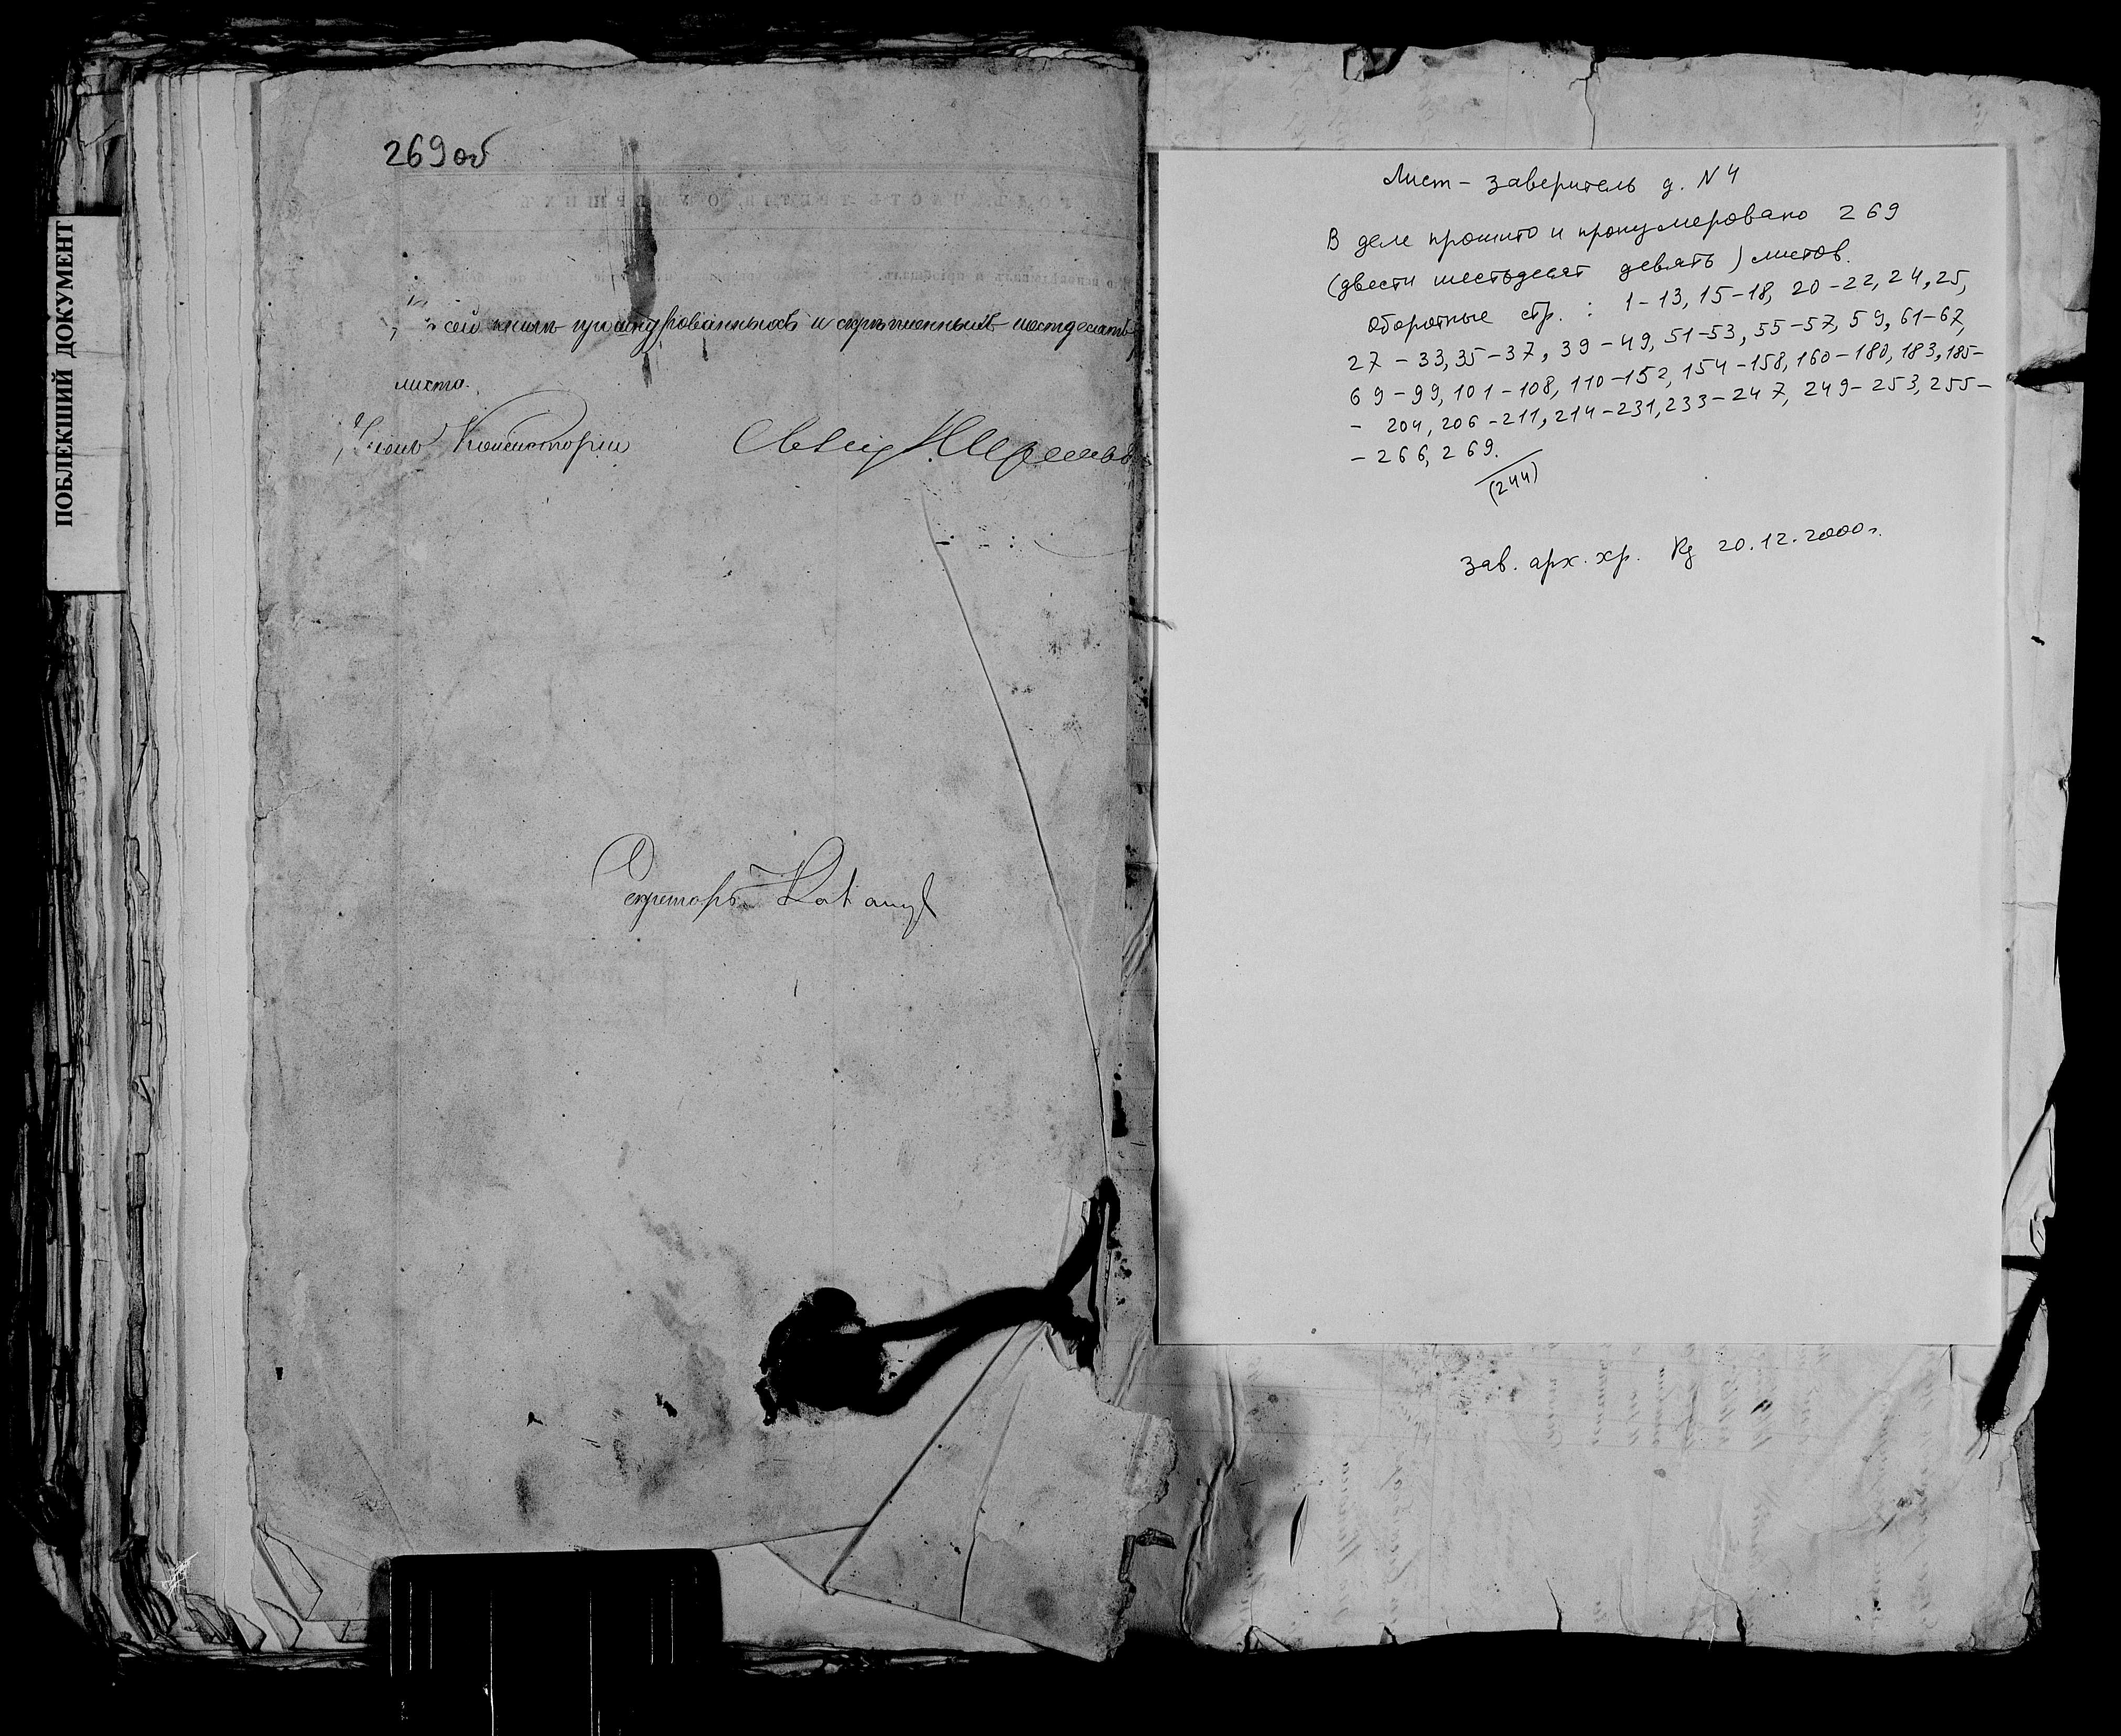 ПОБЛЕКШИЙ ДОКУМЕНТ
269об
сей книге прошнурованныхъ и скрѣпленныхъ шестдесятъ
листа.
Членъ Консисторіи
Секретарь
Лист-заверитель д. N 4
В деле прошито и пронумеровано 269
(двести шестьдесят девять) листов.
Оборотные стр.: 1-13, 15-18, 20-22, 24, 25,
27-33, 35-37, 39-49, 51-53, 55-57, 59, 61-67,
69-99, 101-108, 110-152, 154-158, 160-180, 183, 185-
- 204, 206-211, 214-231, 233-247, 249-253, 255-
- 266, 269.
(244)
Зав. арх. хр. 20.12.2000г.